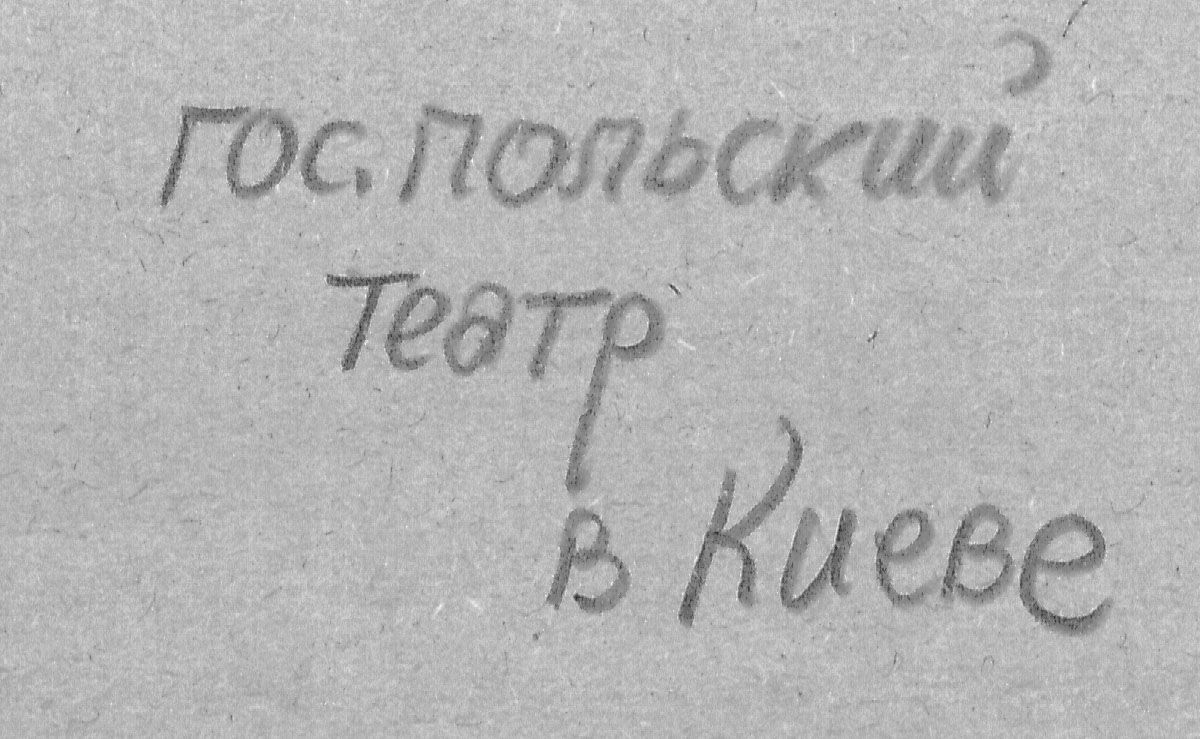 гос. польский
театр
в Киеве